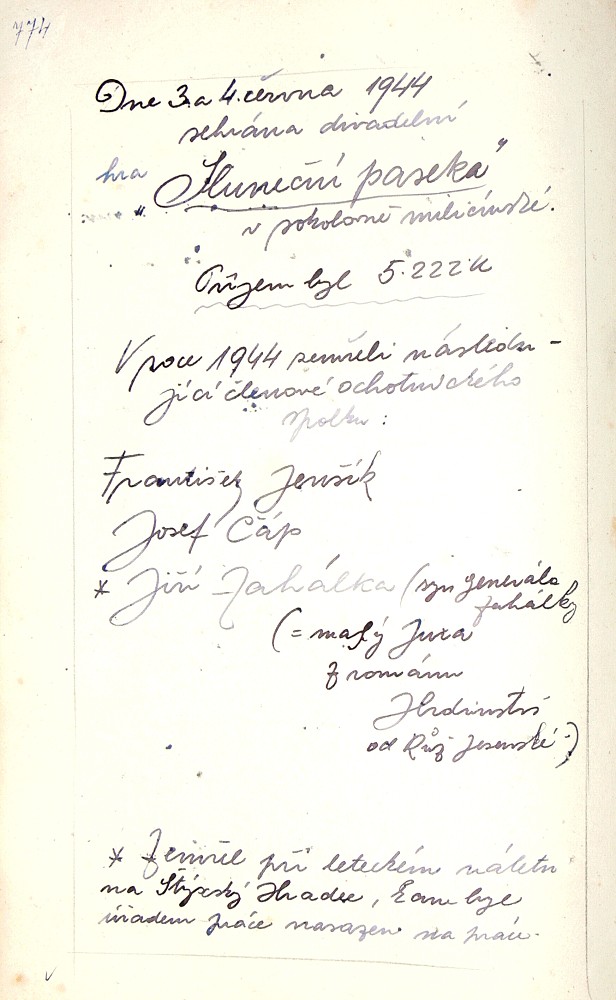 774
Dne 3. a 4. června 1944
sehrána divadelní
hra
„Sluneční paseka"
v sokolovně miličínské.
Příjem byl 5.222 K
V roce 1944 zemřeli následu-
jící členové ochotnického
spolku:
František Jenšík
Josef Čáp
* Jiří Zahálka (syn generála
Zahálky
(= malý Jura
z románu
Hrdinství
od Růž. Jesenské.)
* Zemřel při leteckém náletu
na Štýrský Hradec, kam byl
úřadem práce nasazen na práce.